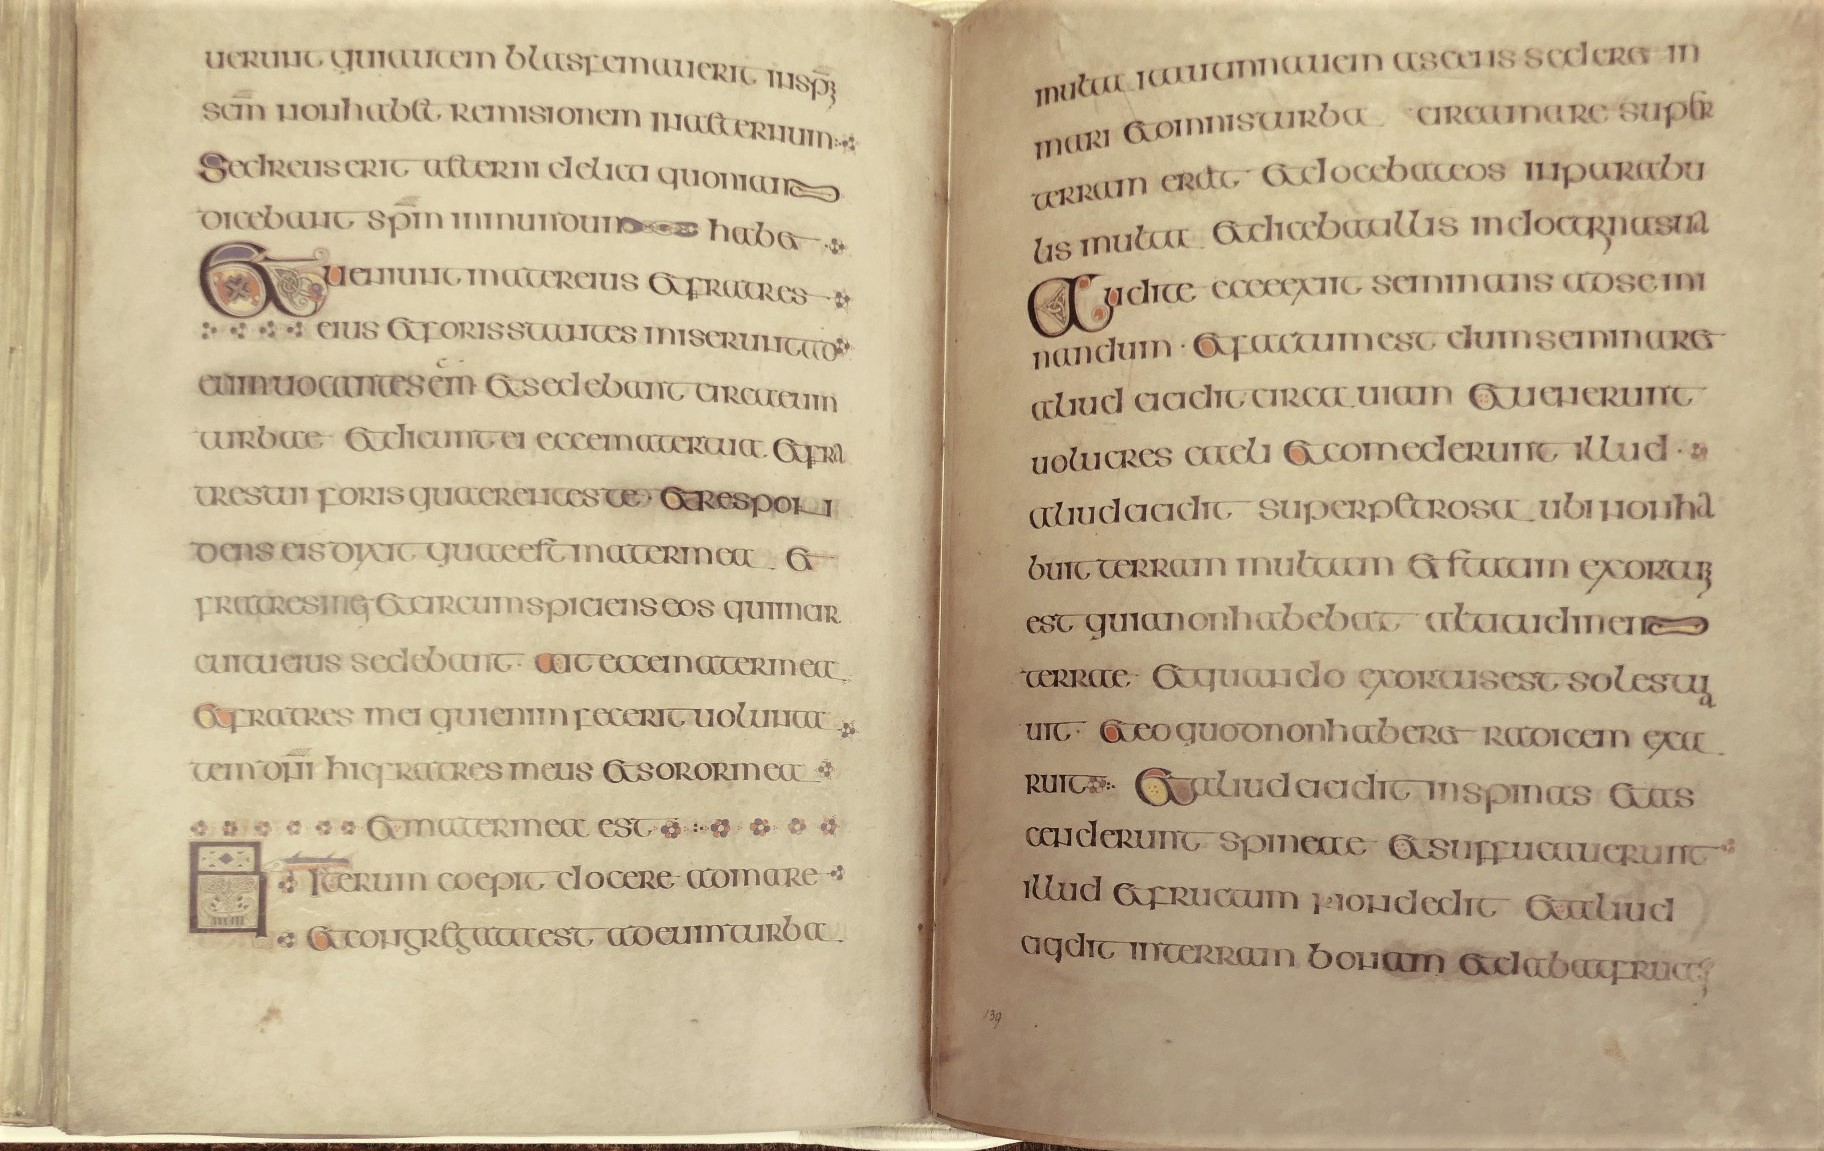 uerunt qui autem blasfemauerit in sp̄m
sc̄m non habet remisionem in aeternum
Sed reus erit aeterni delicti quonian
dicebant sp̄m inmundum habet
Et ueniunt mater eius et fratres
eius et foris stantes miserunt ad
eum uocantes em̄ et sedebant circa eum
turbae et dicunt ei ecce mater tua et fra
tres tui foris quaerentes te et respon
dens eis dixit quae est mater mea et
fratres mei et circumspiciens eos qui in cir
cuitu eius sedebant ait ecce mater mea
et fratres mei qui enim fecerit uolunta
tem dn̄i hic fratres meus et soror mea
et mater mea est
Et iterum coepit docere ad mare
et congregata est ad eum turba
multa ita ut in nauem ascens sederet in
mari et omnis turba circa mare super
terram erat et docebat eos in parabu
lis multa et dicebat illis in doctrina sua
Audite ecce exiit seminans ad semi
nandum et factum est dum seminaret
aliud cecidit circa uiam et uenerunt
uolucres caeli et comederunt illud
aliud cecidit super petrosa ubi non ha
buit terram multam et statim exortum
est quia non habebat altitudinem
terrae et quando exortus est sol estua
uit et eo quod non haberet radicem exa
ruit et aliud cecidit in spinas et as
cenderunt spineae et suffucauerunt
illud et fructum non dedit et aliud
cecidit in terram bonam et dabat fruct
139